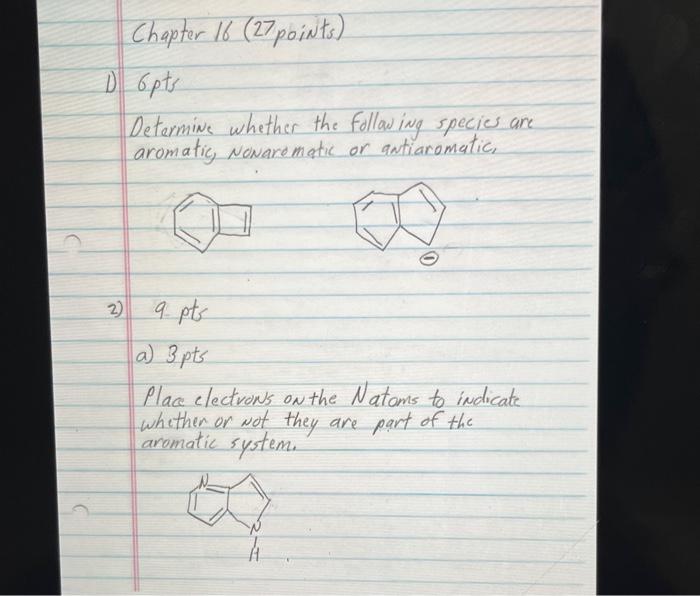 Chapter 16 (27 points)
1) 6pts
Determine whether the following species are
aromatic, nonaromatic or antiaromatic.
⊖
2) 9 pts
a) 3 pts
Place electrons on the N atoms to indicate
whether or not they are part of the
aromatic system.
N
N
H